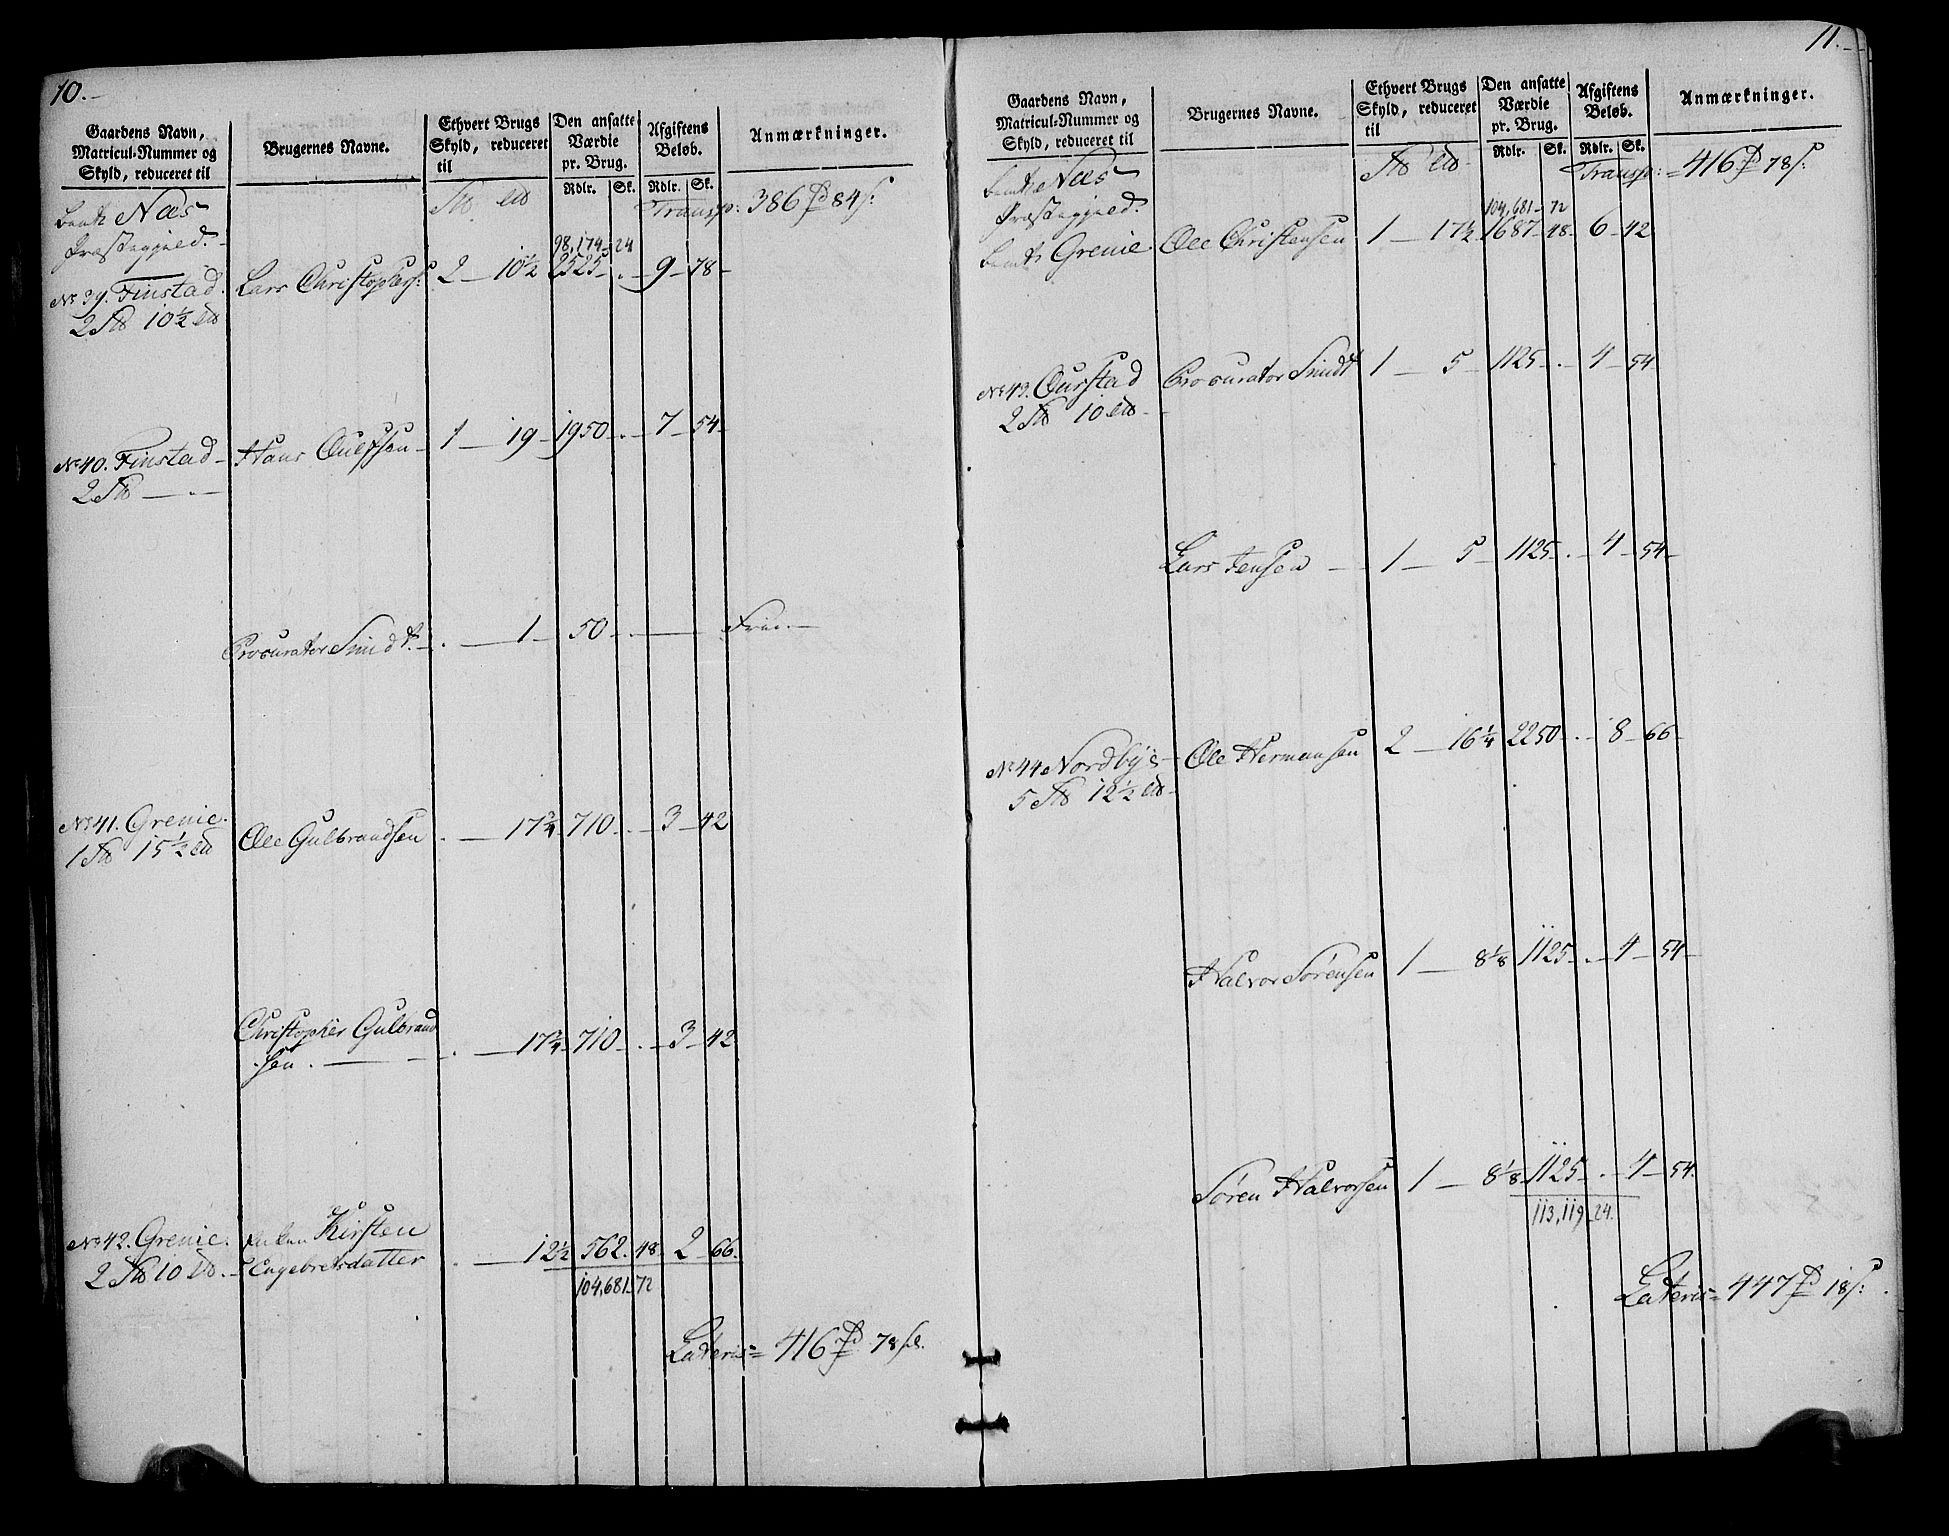 10.-
Gaardens Navn,
Matricul-Nummer og
Skyld, reduceret til
Brugernes Navne.
Ethvert Brugs
Skyld, reduceret
til
Den ansatte
Værdie
pr. Brug.
Rdlr. Sk.
Afgiftens
Beløb.
Rdlr. Sk.
Anmærkninger.
Næs
Præstegjeld.
Transp: 386 84
98,174-24
No 39. Finstad Lars Christophers: 2 - 10½ 2525 - . - 9 - 78 -
2 10½
No 40. Finstad - Hans Oulfsen - 1 - 19 - 1950 - . - 7 - 54 -
2 - . -
Procurator Smidt. - . - 1 - 50 - . - Frie. -
No 41. Grenie. Ole Gulbrandsen . - 17¾ 710 - . - 3 - 42
1 15½
Christopher Gulbrand
sen. - . - 17¾ 710 - . - 3 - 42
No 42. Grenie. Kirsten
2 10 Engebretsdatter . - 12½ 562. 48 - 2 - 66.
104,681-72
Lateris = 416 78
11.-
Gaardens Navn,
Matricul-Nummer og
Skyld, reduceret til
Brugernes Navne.
Ethvert Brugs
Skyld, reduceret
til
Den ansatte
Værdie
pr. Brug.
Rdlr. Sk.
Afgiftens
Beløb.
Rdlr. Sk.
Anmærkninger.
Næs
Præstegjeld.
Transp: = 416 78
104,681-72
Grenie Ole Christensen 1 - 17½ 1687-48 - 6 - 42
No 43. Ourstad Procurator Smidt 1 - 5 - 1125 - . - 4 - 54
2 10
Lars Jensen - 1 - 5 - 1125 - . - 4 - 54 -
No 44 Nordbye - Ole Hermansen 2 - 16¼ 2250 - . - 8 - 66 -
5 12½
Halvor Sörensen 1 - 8⅛ 1125 - . - 4 - 54 -
Sören Halvorsen 1 - 8⅛ 1125 - . - 4 - 54.
113,119-24.
Lateris = 447 18